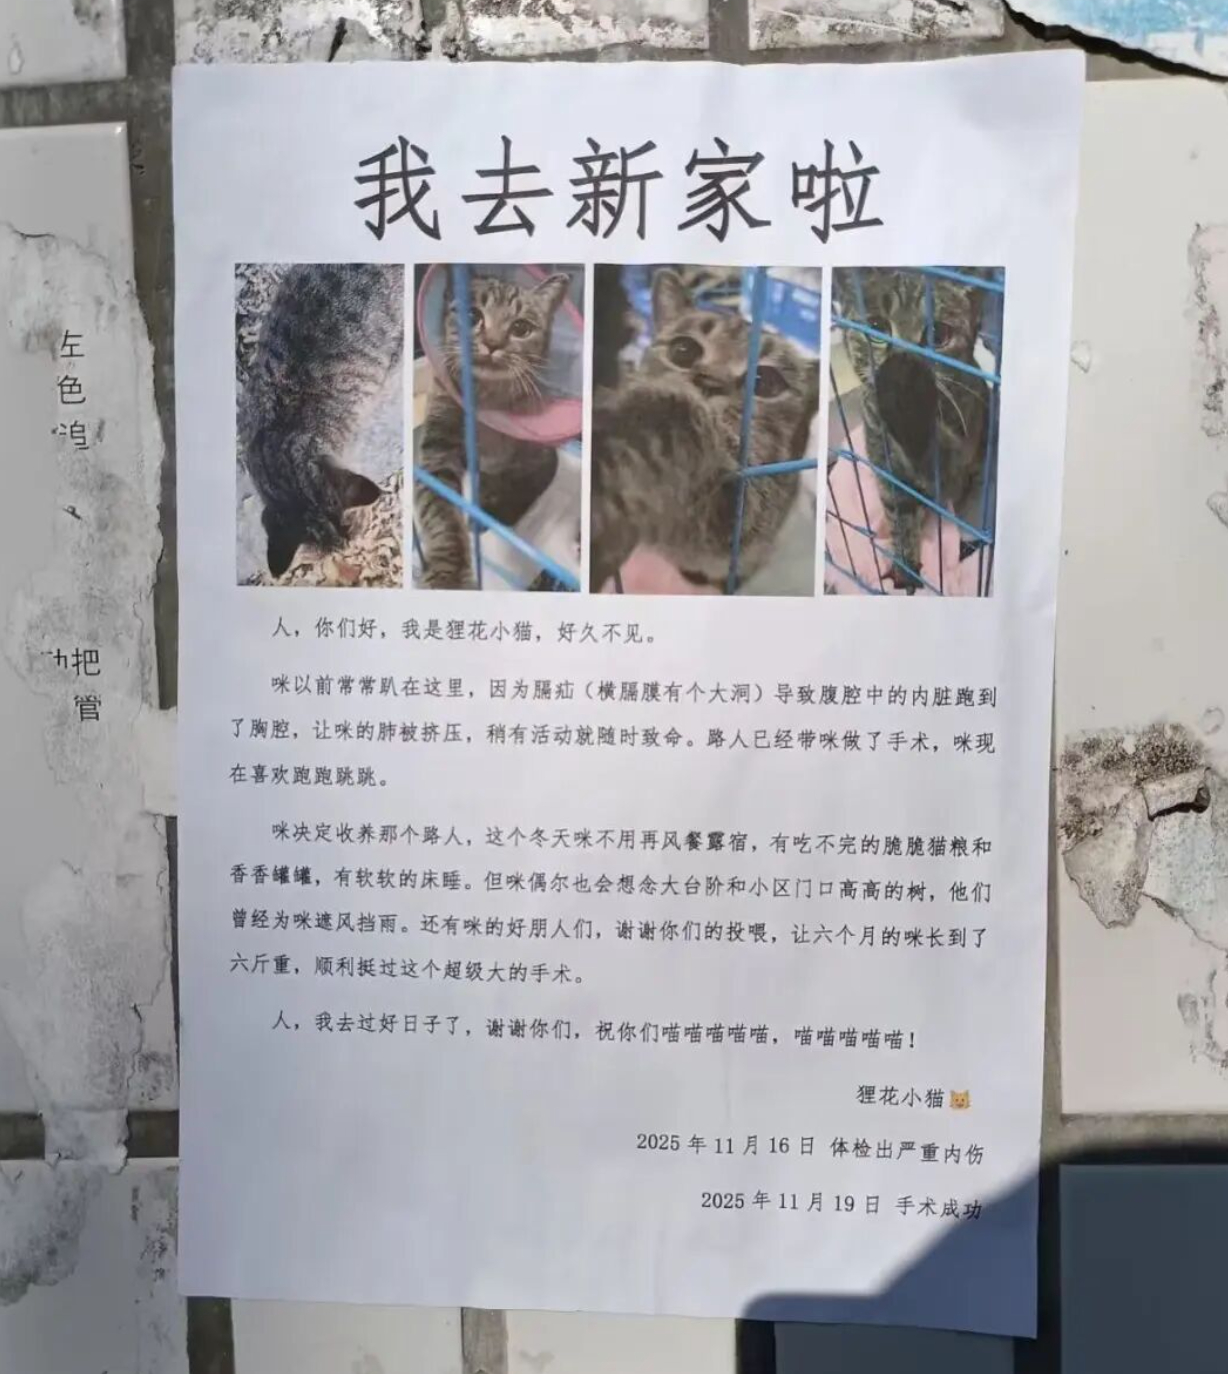 我去新家啦
人，你们好，我是狸花小猫，好久不见。
咪以前常常趴在这里，因为膈疝（横膈膜有个大洞）导致腹腔中的内脏跑到
了胸腔，让咪的肺被挤压，稍有活动就随时致命。路人已经带咪做了手术，咪现
在喜欢跑跑跳跳。
咪决定收养那个路人，这个冬天咪不用再风餐露宿，有吃不完的脆脆猫粮和
香香罐罐，有软软的床睡。但咪偶尔也会想念大台阶和小区门口高高的树，他们
曾经为咪遮风挡雨。还有咪的好朋人们，谢谢你们的投喂，让六个月的咪长到了
六斤重，顺利挺过这个超级大的手术。
人，我去过好日子了，谢谢你们，祝你们喵喵喵喵喵，喵喵喵喵喵！
狸花小猫🐱
2025 年 11 月 16 日 体检出严重内伤
2025 年 11 月 19 日 手术成功
左
色
把
管